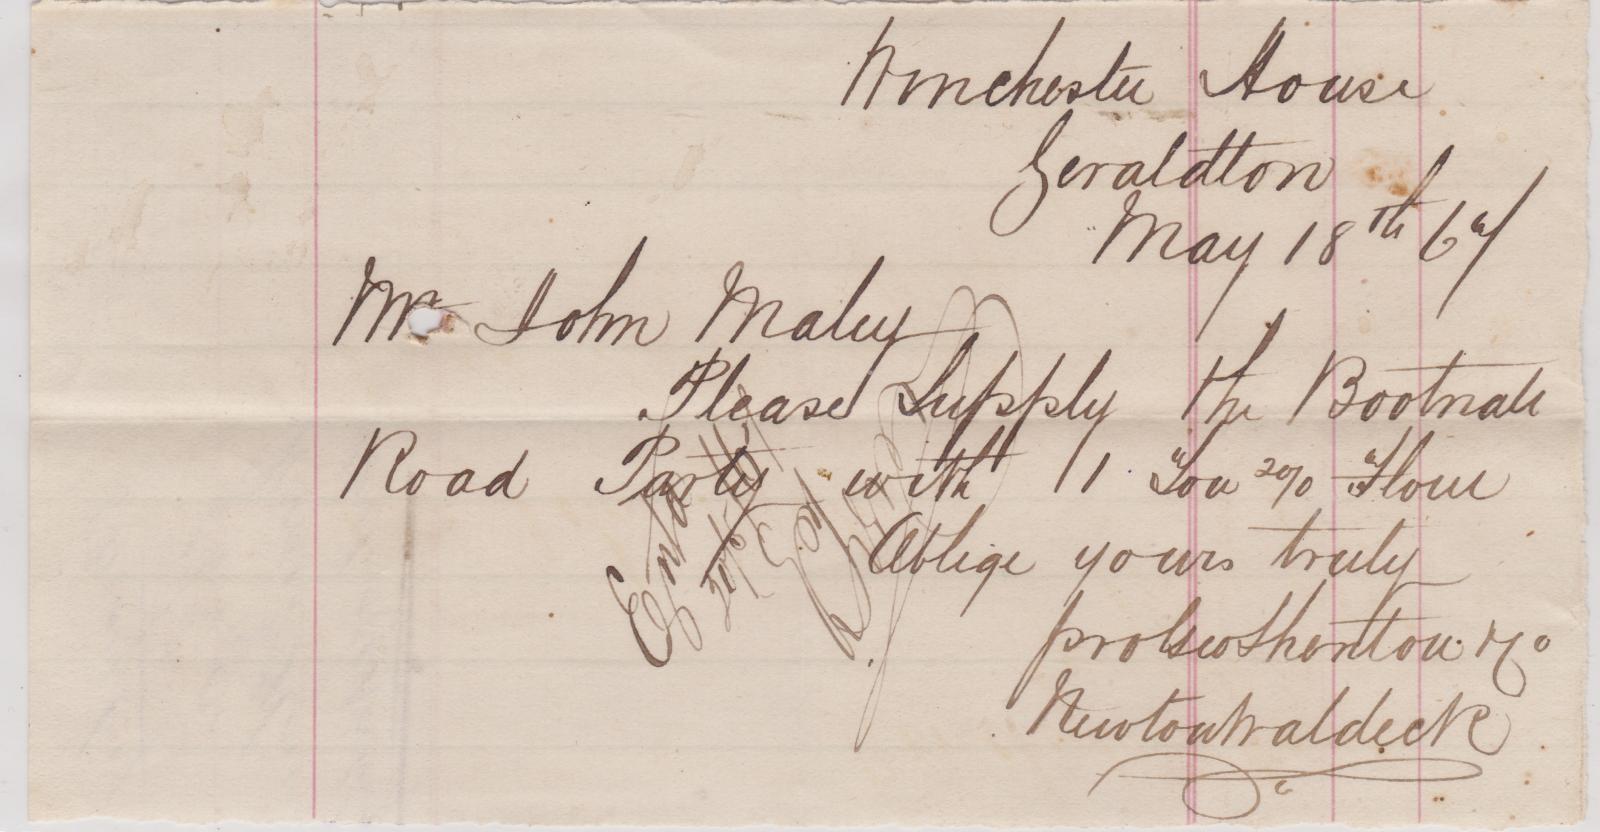 Winchester House
Geraldton
May 18th
Mr John Maley
Please Supply the Bootnall
Road Party with 1 Ton 20% Flour
Oblige yours truly
pro Geo Shenton & Co
Newton Waldeck
Ent